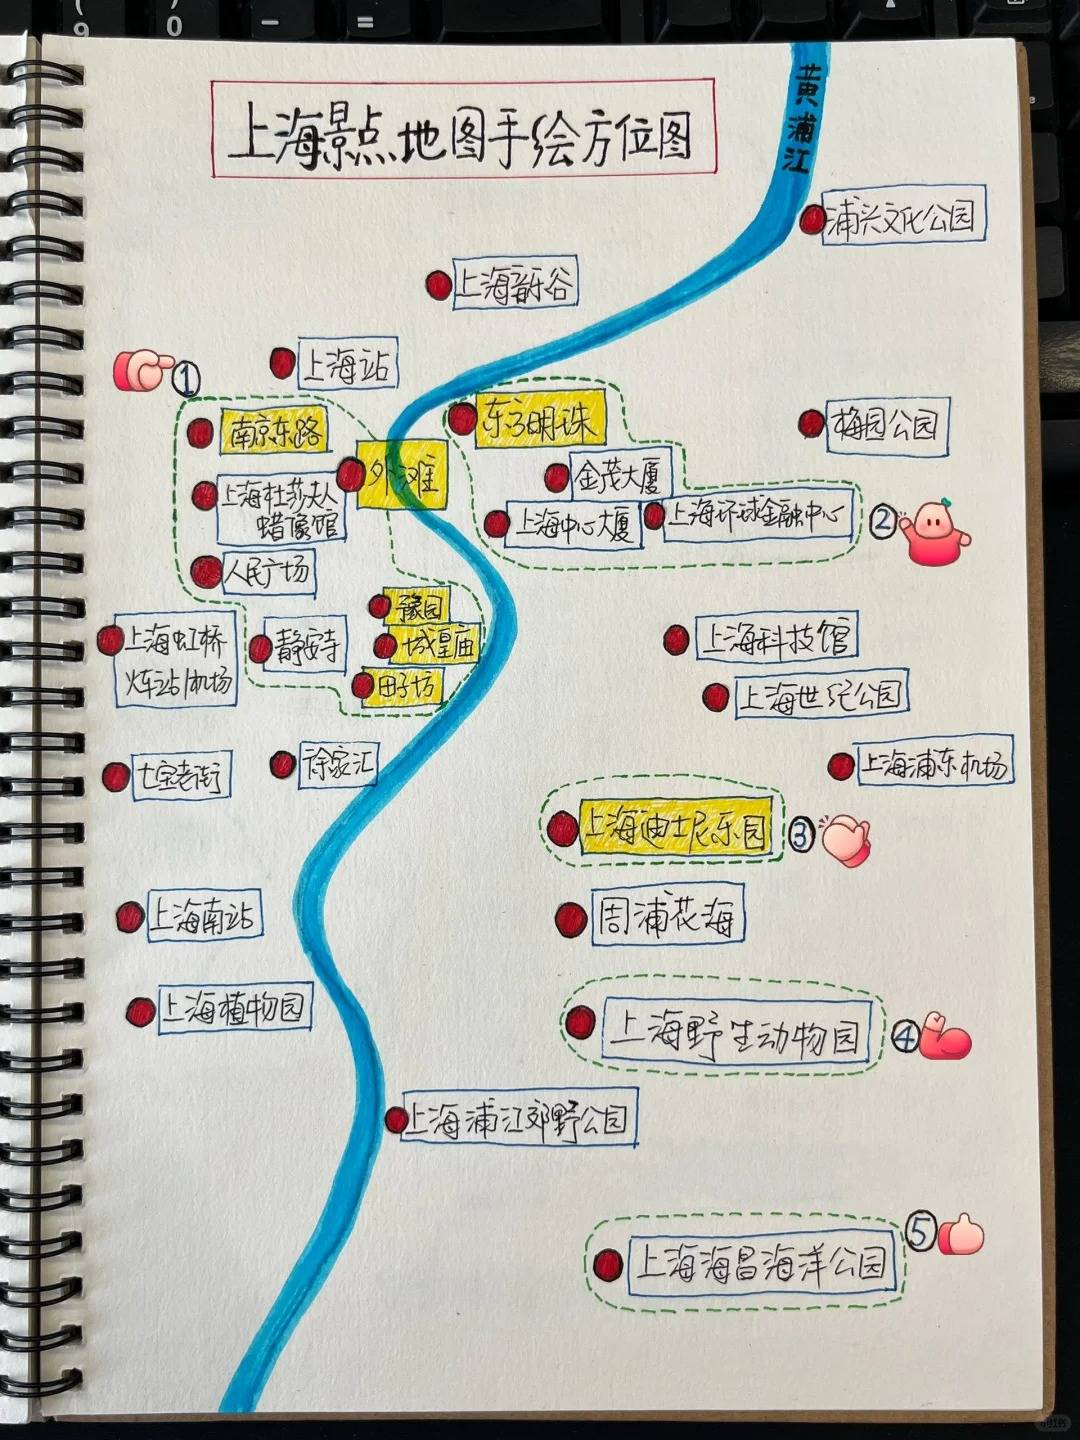 上海景点地图手绘方位图
黄浦江
浦兴文化公园
上海音乐谷
上海站
①
南京东路
东方明珠
梅园公园
外滩
金茂大厦
上海杜莎夫人
蜡像馆
上海中心大厦
上海环球金融中心
②
人民广场
豫园
上海虹桥
火车站/机场
静安寺
城皇庙
上海科技馆
田子坊
上海世纪公园
七宝老街
徐家汇
上海浦东机场
上海迪士尼乐园
③
上海南站
周浦花海
上海植物园
上海野生动物园
④
上海浦江郊野公园
⑤
上海海昌海洋公园